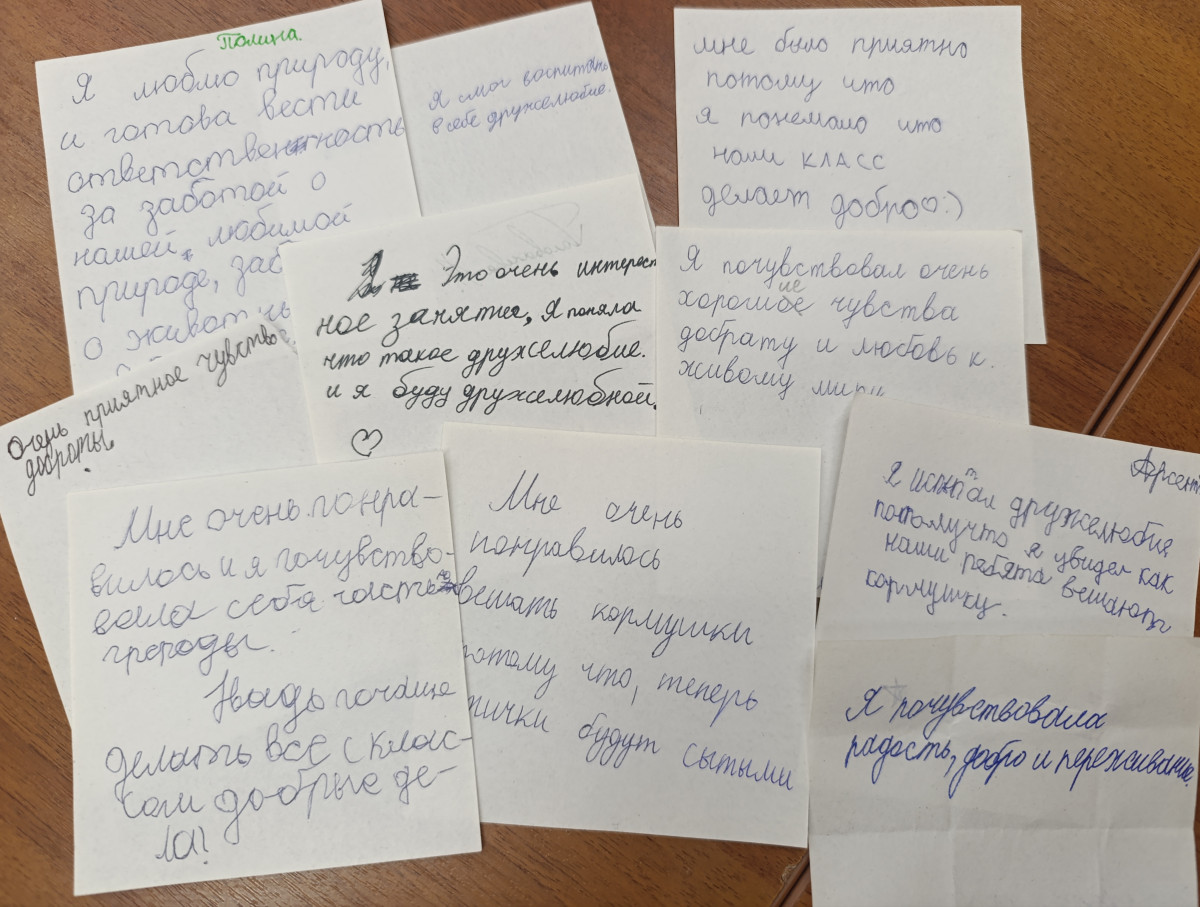 Полина.
Я люблю природу,
и готова вести
ответственность
за заботой о
нашей любимой
природе, заб
о животны
Я смог воспитать
в себе дружелюбие.
мне было приятно
потому что
я понемаю что
наш класс
делает добро♡:)
Это очень интерест
ное занятие, Я поняла
что такое дружелюбие.
и я буду дружелюбной.
♡
Я почувствовал очень
хорошие чувства
доброту и любовь к
живому миру
Очень приятное чувство
доброты.
Мне очень понра-
вилось и я почувство-
вала себя часть
природы.
Надо почаще
делать все с клас-
сом добрые де-
ла!
Мне очень
понравилось
вешать кормушки
потому что, теперь
тички будут сытыми
Арсент
Я испытал дружелюбие
потомучто я увидел как
наши ребята вешают
кормушку.
Я почувствовала
радость, добро и переживание.